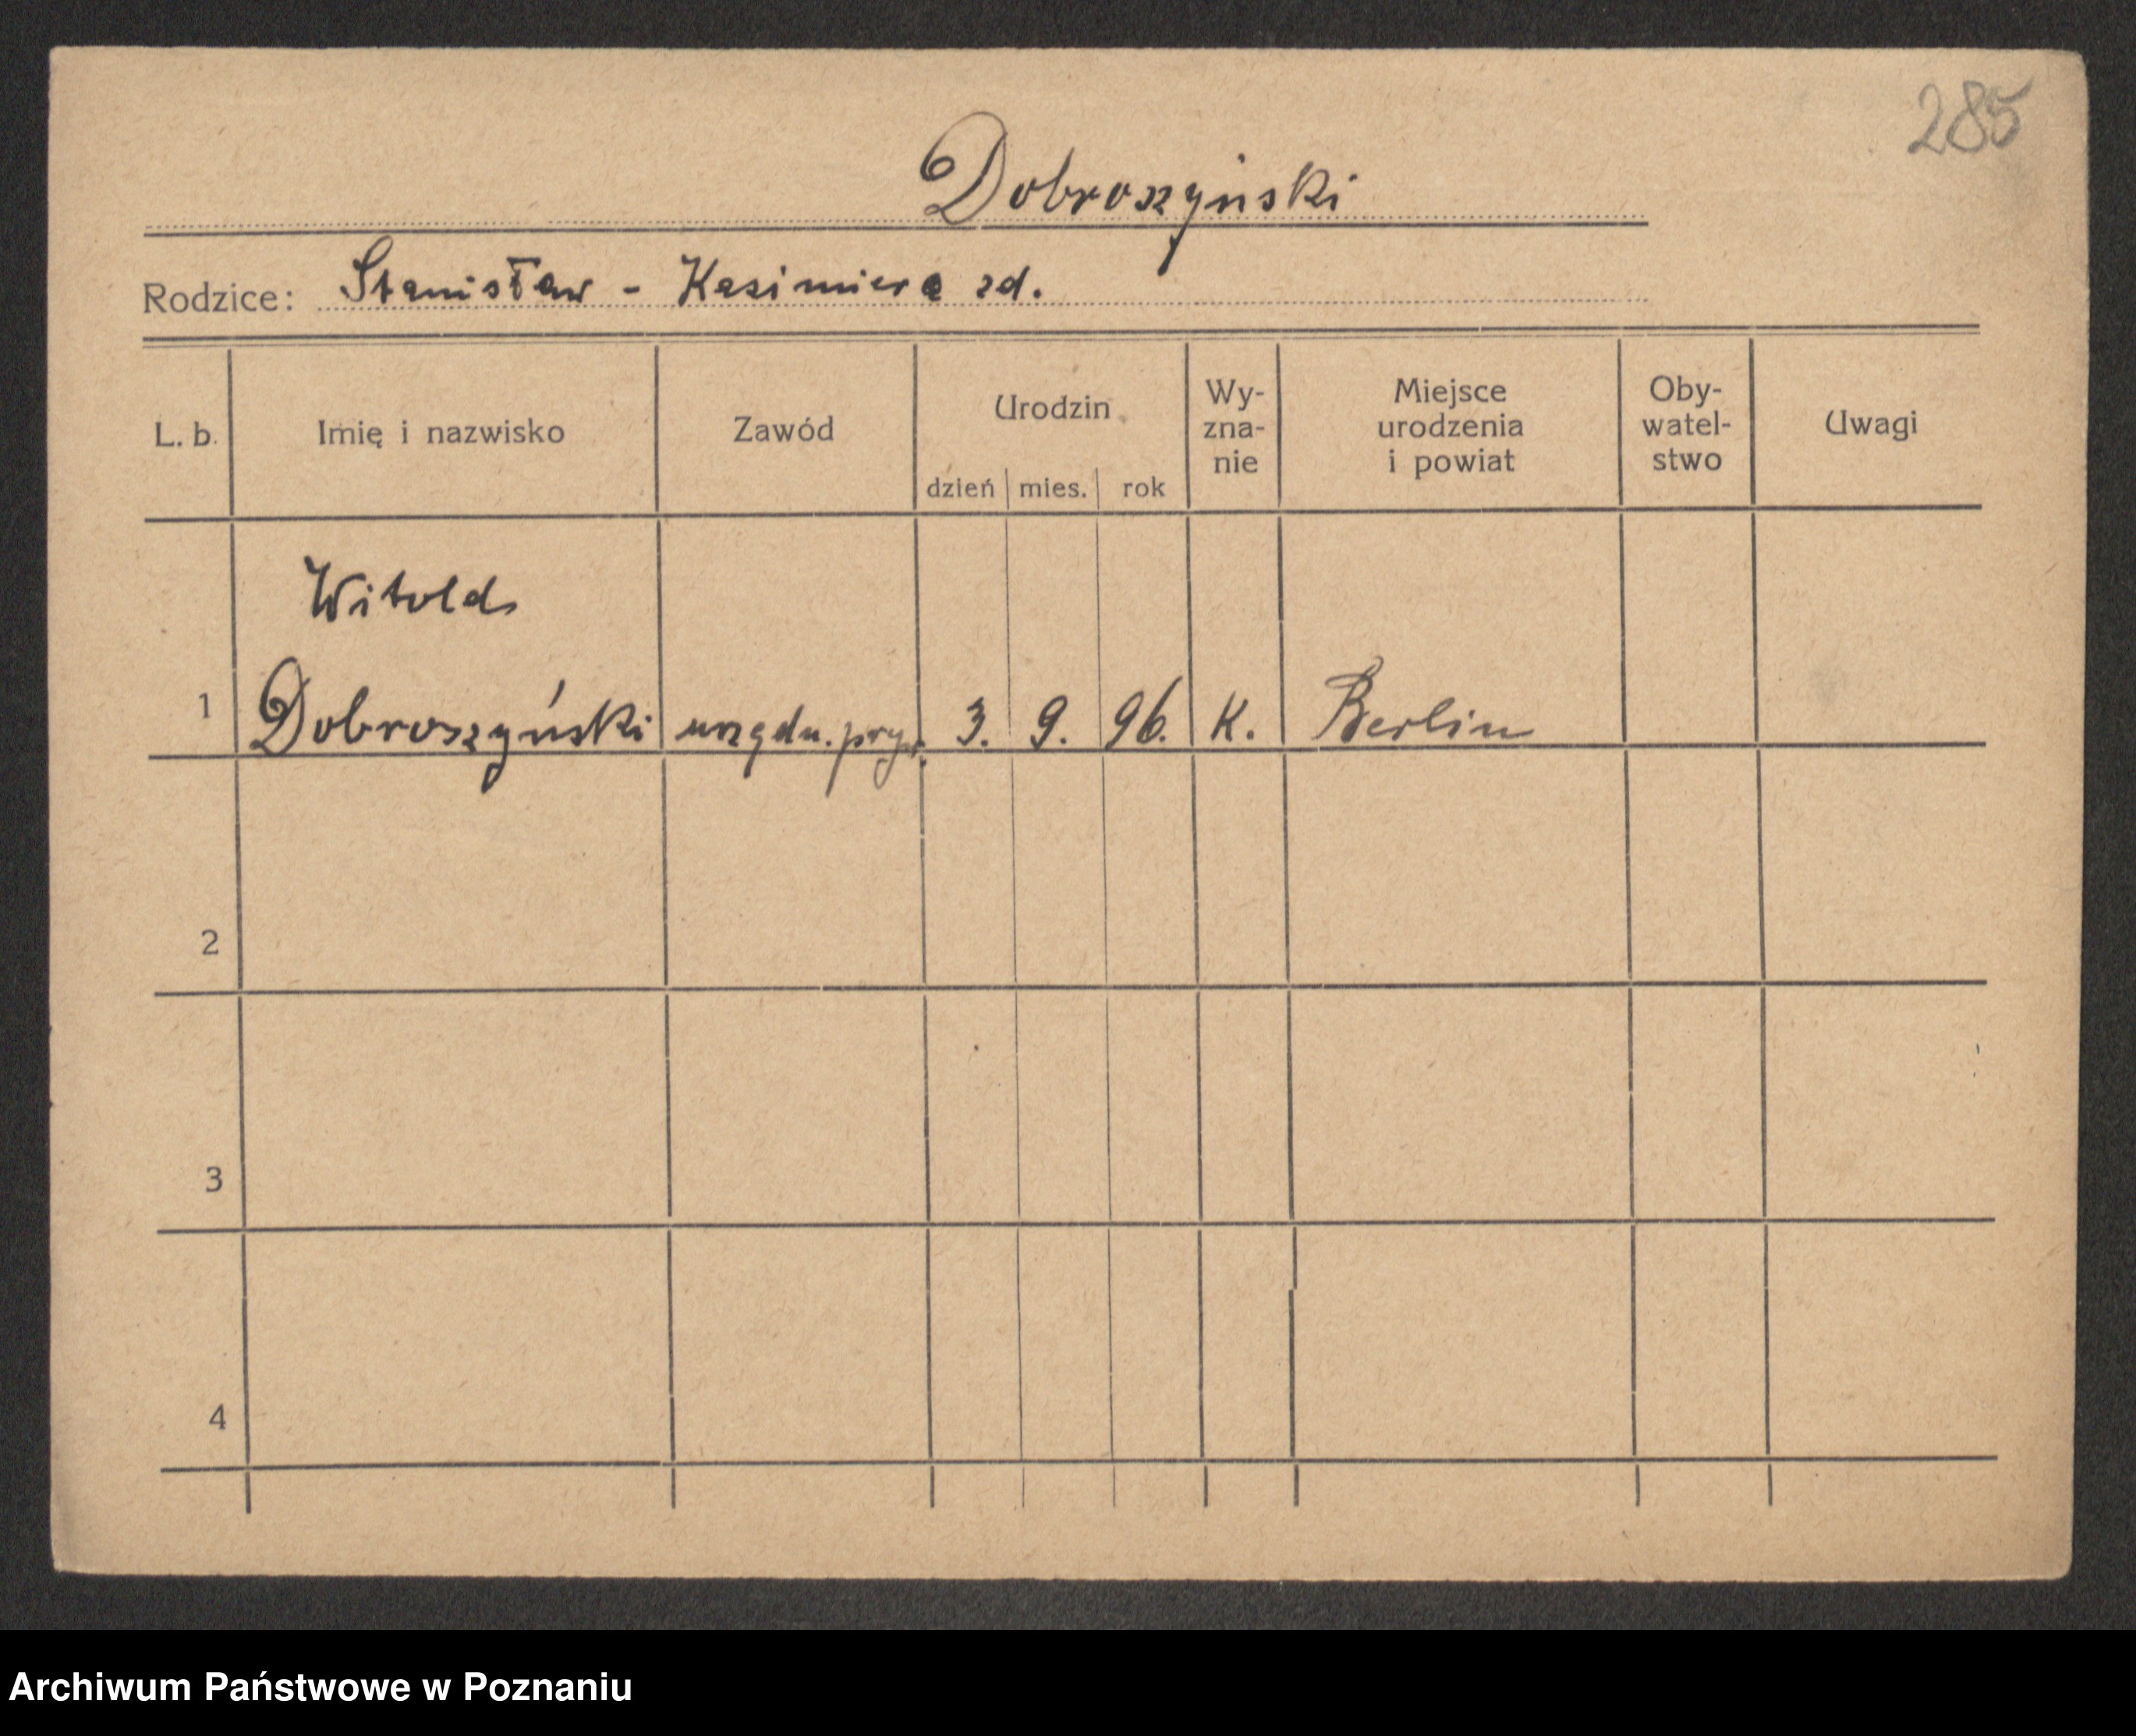 285
Dobroszyński
Rodzice: Stanisław - Kazimiera zd.
L. b. Imię i nazwisko Zawód Urodzin dzień mies. rok Wy- zna- nie Miejsce urodzenia i powiat Oby- watel- stwo Uwagi
Witold
1 Dobroszyński urzędn. pryw. 3. 9. 96. K. Berlin
2
3
4
Archiwum Państwowe w Poznaniu